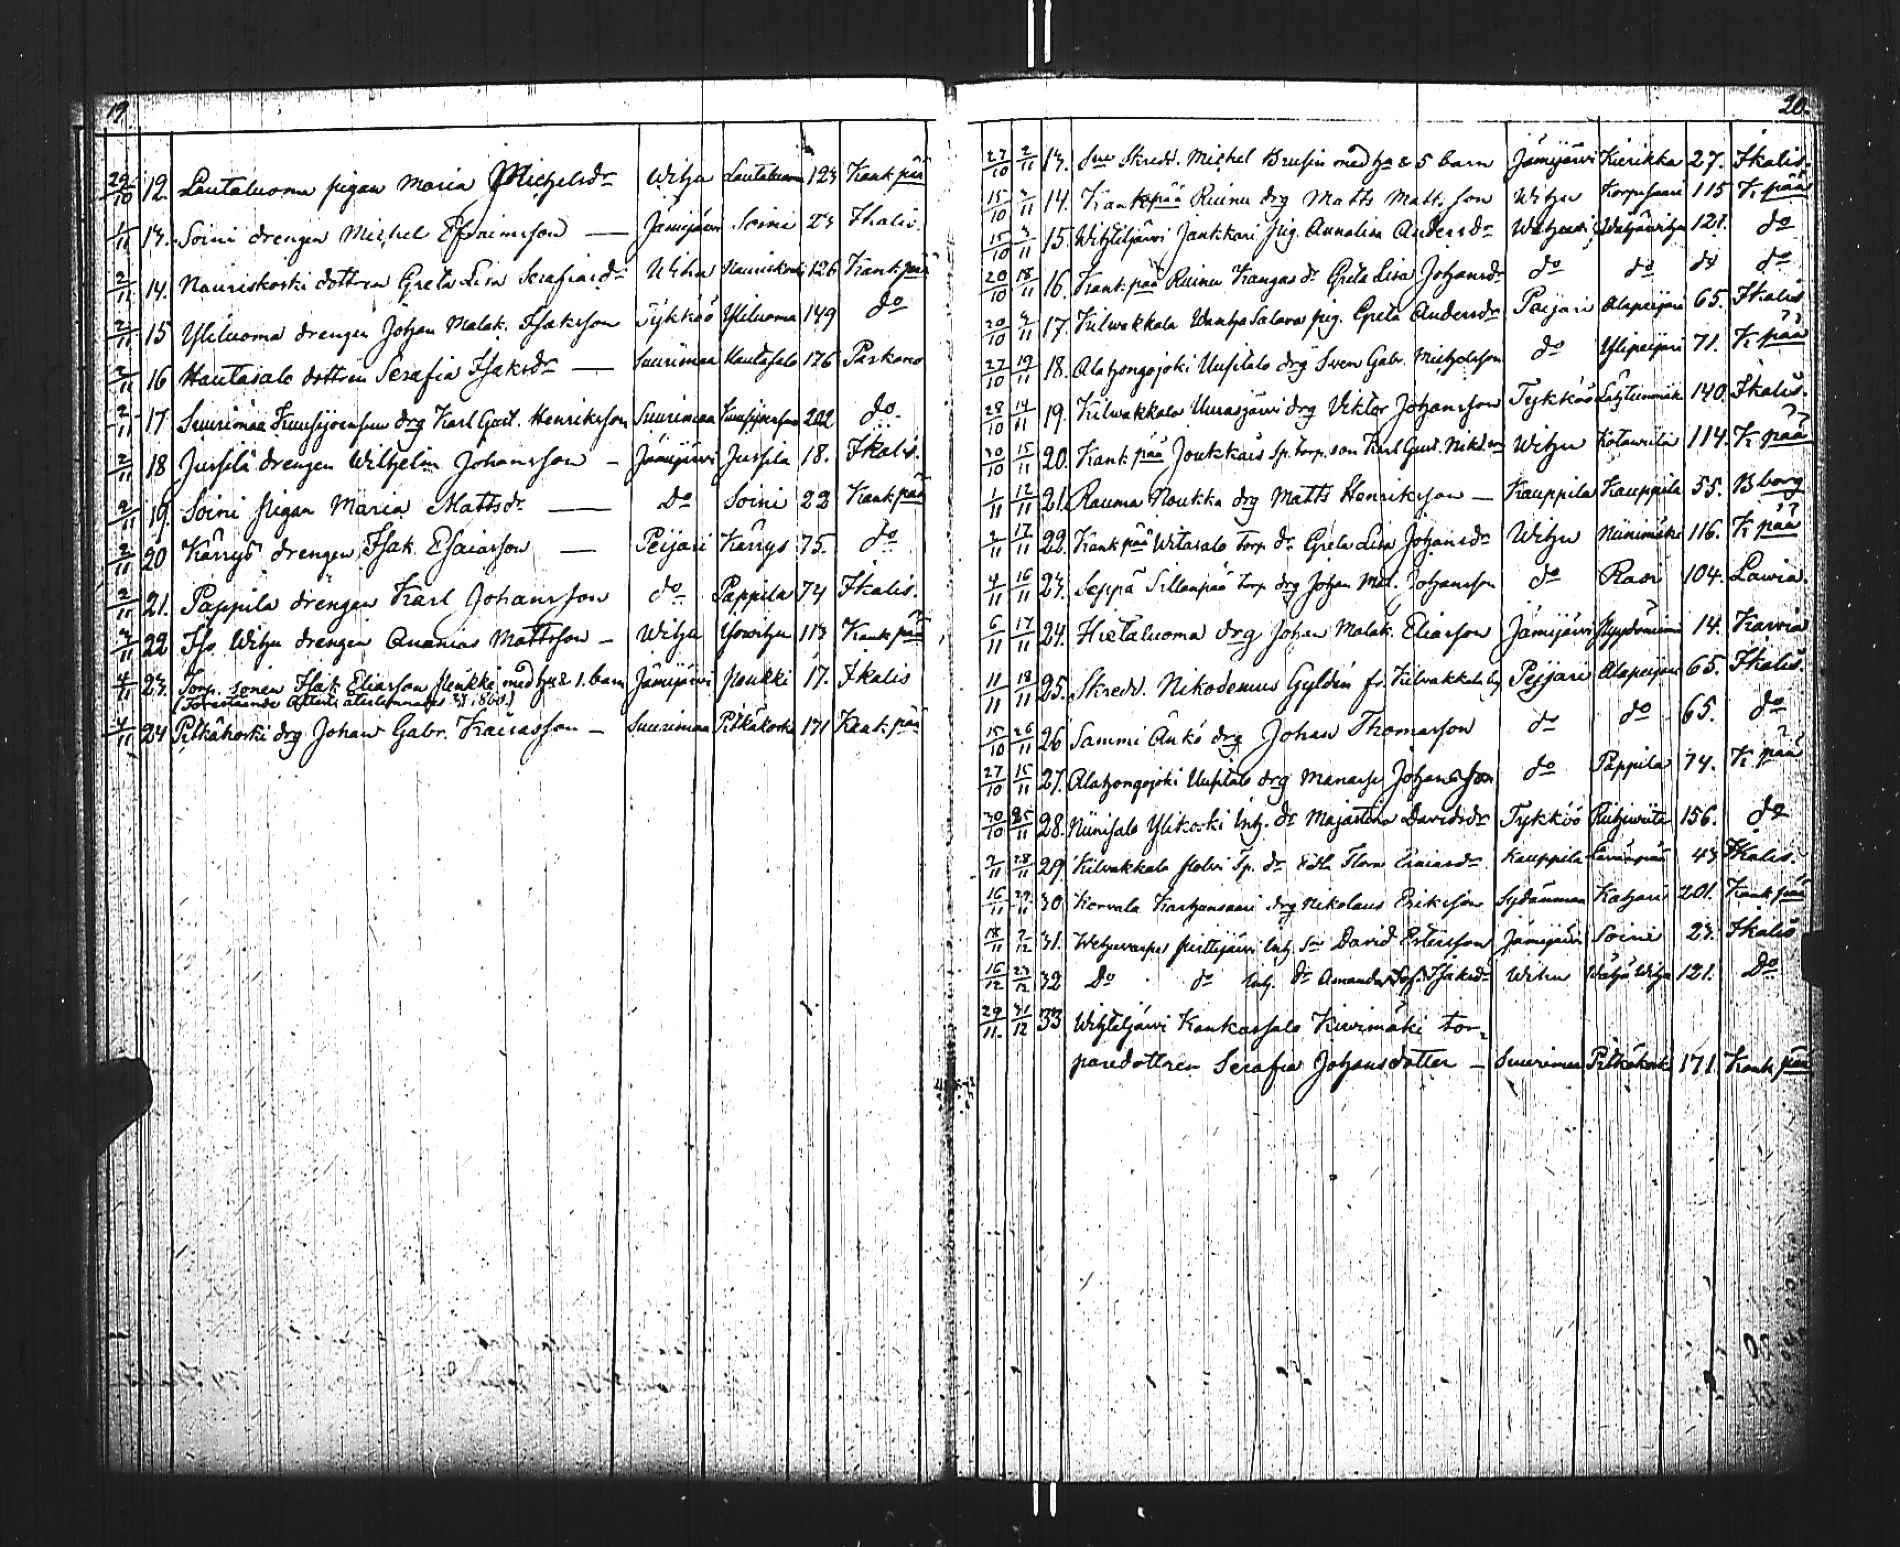 19
29/10 12. Lautaluoma pigan Maria Michelsdr Wihu Lautaluoma 123 Kank.pää
1/11 13. Soini drengen Michel Efraimsson — Jämijärvi Soini 23 Ikalis
2/11 14. Nauriskoski dottren Greta Lisa Serafiasdr Wihu Nauriskoski 126 Kank.pää
2/11 15 Yliluoma drengen Johan Malak. Isaksson Tykköö Yliluoma 149 do
2/11 16 Hautasalo dottren Serafia Isaksdr — Suurimaa Hautasalo 176 Parkano
2/11 17 Suurimaa drg Karl Gust. Henriksson Suurimaa 202 do
2/11 18 Jussila drengen Wilhelm Johansson — Jämijärvi Jussila 18. Ikalis.
2/11 19. Soini pigan Maria Mattsdr — Do Soini 22 Kank.pää
2/11 20 Kärrys drengen Isak Esaiasson — Peijari Kärrys 75. do
2/11 21. Pappila drengen Karl Johansson do Pappila 74 Ikalis.
4/11 22 Iso Wihu drengen Ananias Mattsson — Wihu Isowihu 113 Kank.pää
4/11 23. Torp. sonen Isak Eliasson Penkki med hu & 1. barn Jämijärvi Penkki 17. Ikalis
(Förestående Attest återlemnades 1860.)
4/11 24 Pitkäkoski drg Johan Gabr. Kaiasson — Suurimaa Pitkäkoski 171 Kank.pää
20.
27/10 2/11 13. Sne Skredd. Michel Brusin med hu & 5 barn Jämijärvi Kierikka 27. Ikalis.
15/10 2/11 14. Kankpää Ruinu drg Matts Matt.son Wihu Korpisaari 115 K.pää
15/10 3/11 15. Wihteljärvi Jankkari pig. Annalisa Andersdr 121. do
20/10 18/11 16. Kank.pää Ruinu Kangas dr Greta Lisa Johansdr do do do do
20/10 4/11 17. Kilwakkala Wanha Salava pig. Greta Andersdr Peijari Alapeijari 65. Ikalis
27/10 19/11 18. Alahongojoki Uusitalo drg Sven Gabr. Michelsson do Ylipeijari 71. K.pää
28/10 14/11 19. Kilwakkala Uurasjärvi drg Viktor Johansson Tykköö 140. Ikalis.
30/10 15/11 20. Kank.pää Joukkais sp. torp. son Karl Gust. Wihu Kotawiita 114. K.pää
1/11 12/11 21. Rauma Noukka drg Matts Henriksson — Kauppila Kauppila 55. B.borg
2/11 17/11 22. Kank.pää Witasalo torp. dr Greta Lisa Johansdr Wihu Niinimäki 116. K.pää
4/11 16/11 23. Seppä Sillanpää torp. drg Johan Mat. Johansson do Rasi 104. Lavia.
6/11 17/11 24. Hietaluoma drg Johan Malak. Eliasson Jämijärvi 14. Karvia
11/11 18/11 25. Skredd. Nikodemus Gyldén fr. Kilvakkala by Peijari Alapeijari 65. Ikalis.
15/10 26/11 26 Sammi Änkö drg Johan Thomasson do do 65. do
27/10 15/11 27. Alahongojoki Uusitalo drg Manasse Johansson do Pappila 74. K.pää
30/10 25/11 28. Niinisalo Ylikoski Inh. dr Majastina Davidsdr Tykköö 156. do
2/11 28/11 29. Kilvakkala Tp. dr Edla Flora Kauppila 43 Ikalis.
16/11 29/11 30 Korvala Karhansaari drg Nikolaus Eriksson Sydänmaa Katjari 201. Kank.pää
18/11 2/12 31. Inh. Sn David Jämijärvi Soini 23. Ikalis
16/12 23/12 32 Do do Inh. dr Amanda Sof. Isaksdr Wihu Wähä Wihu 121. Do
29/11. 31/12 33 Wihteljärvi Kankarsalo Kivimäki tor-
paredottren Serafia Johansdotter — Suurimaa Pitkäkoski 171. Kank.pää